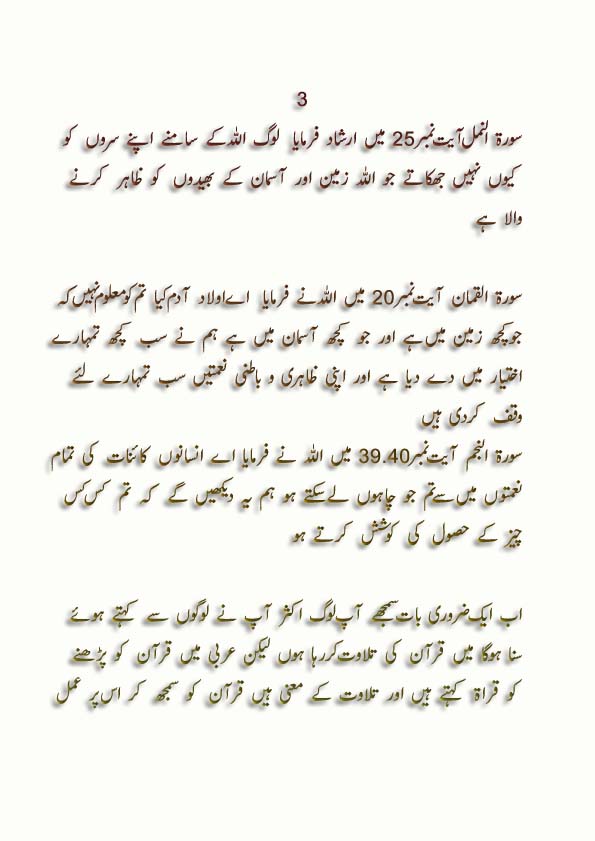 3
سورۃ النمل آیت نمبر 25 میں ارشاد فرمایا لوگ اللہ کے سامنے اپنے سروں کو
کیوں نہیں جھکاتے جو اللہ زمین اور آسمان کے بھیدوں کو ظاہر کرنے
والا ہے
سورۃ القمان آیت نمبر 20 میں اللہ نے فرمایا اے اولاد آدم کیا تم کو معلوم نہیں کہ
جو کچھ زمین میں ہے اور جو کچھ آسمان میں ہے ہم نے سب کچھ تمہارے
اختیار میں دے دیا ہے اور اپنی ظاہری و باطنی نعمتیں سب تمہارے لئے
وقف کردی ہیں
سورۃ النجم آیت نمبر 39.40 میں اللہ نے فرمایا اے انسانوں کائنات کی تمام
نعمتوں میں سے تم جو چاہوں لے سکتے ہو ہم یہ دیکھیں گے کہ تم کس کس
چیز کے حصول کی کوشش کرتے ہو
اب ایک ضروری بات سمجھے آپ لوگ اکثر آپ نے لوگوں سے کہتے ہوئے
سنا ہوگا میں قرآن کی تلاوت کررہا ہوں لیکن عربی میں قرآن کو پڑھنے
کو قراۃ کہتے ہیں اور تلاوت کے معنی ہیں قرآن کو سمجھ کر اس پر عمل